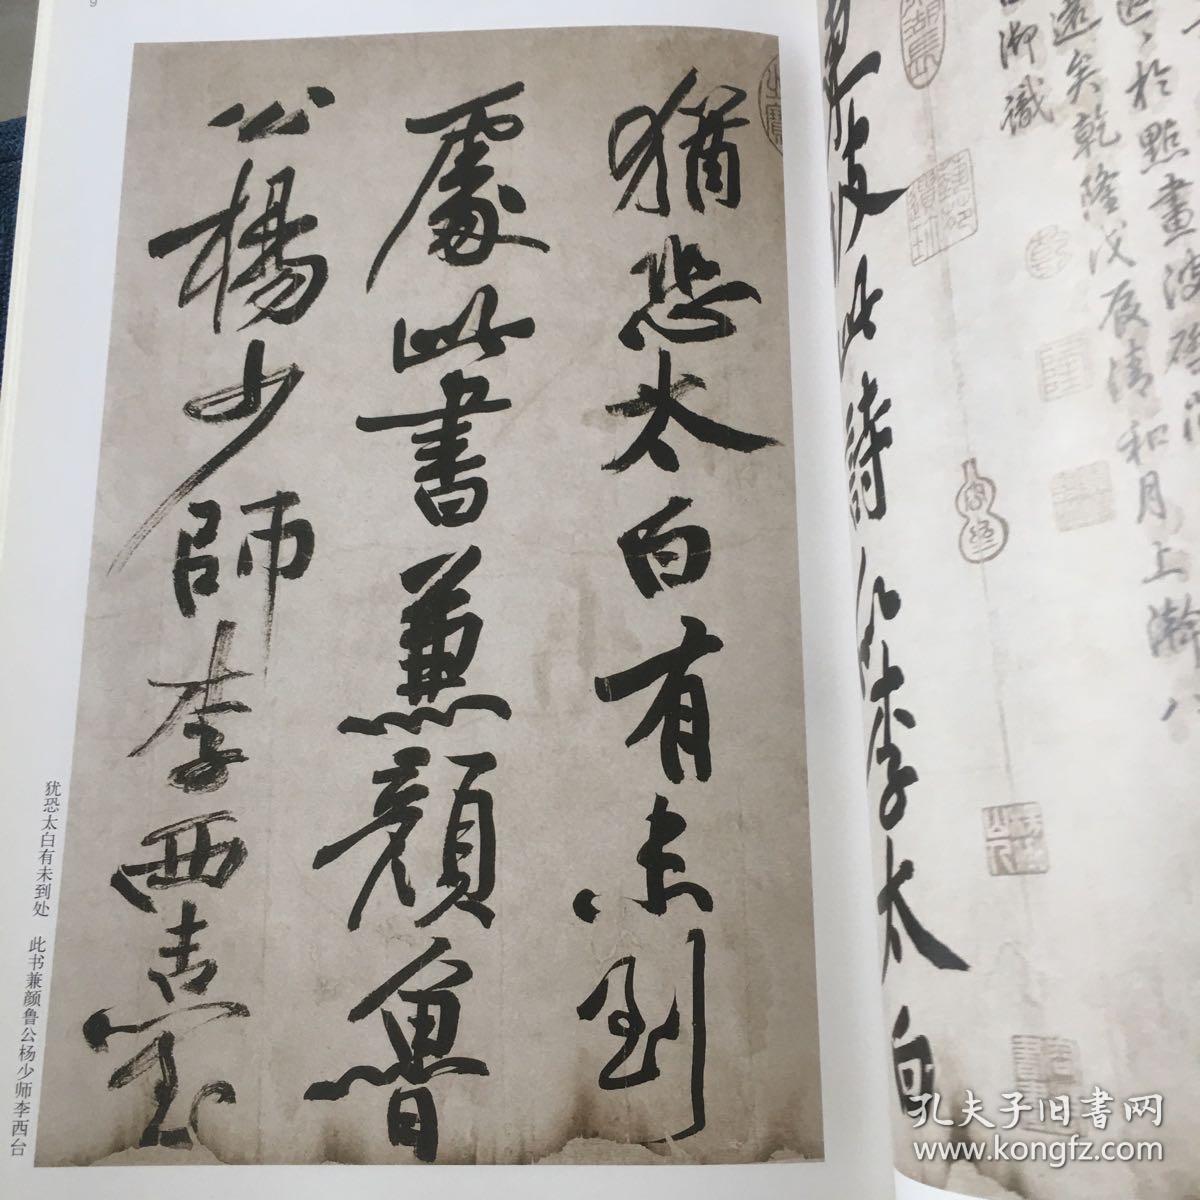 上瀚
遠矣乾隆戊辰清和月
御識
東坡此詩似李太白
猶恐太白有未到
處此書兼顏魯
公楊少師李西臺
犹恐太白有未到处 此书兼颜鲁公杨少师李西台
9
孔夫子旧书网
www.kongfz.com